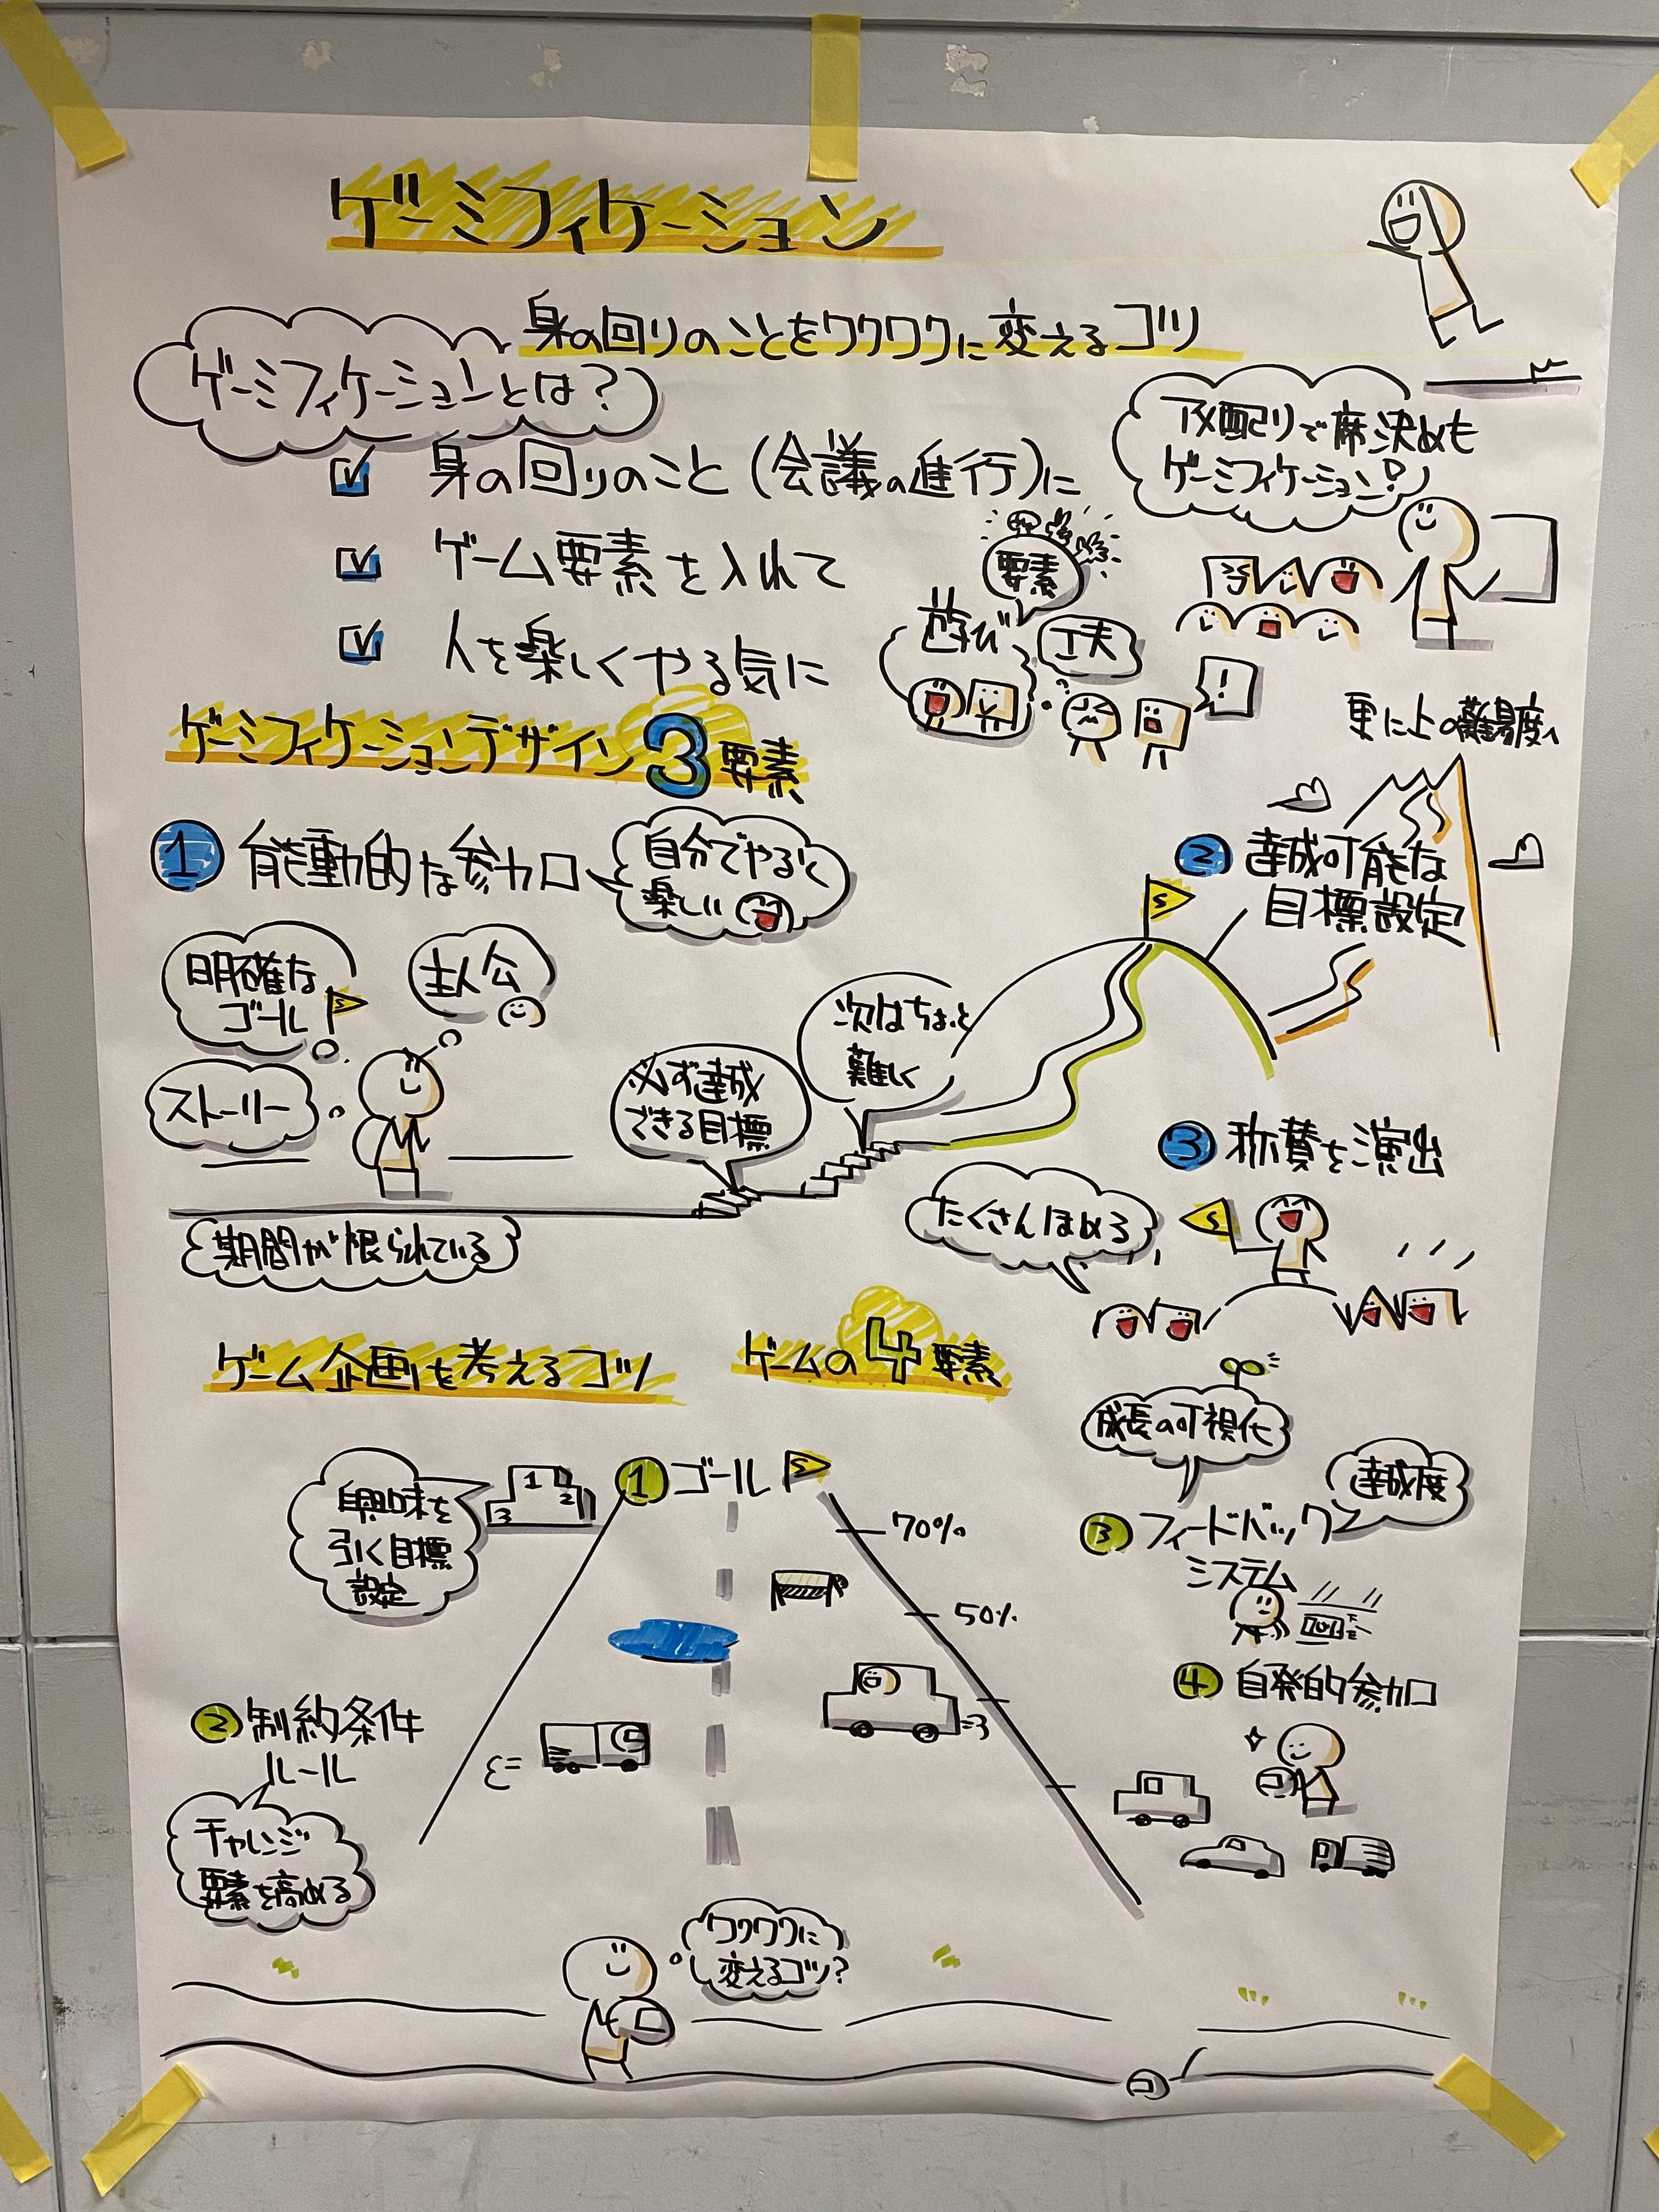 ゲーミフィケーション
身の回りのことをワクワクに変えるコツ
ゲーミフィケーションとは?
身の回りのこと(会議の進行)に
ゲーム要素を入れて
人を楽しくやる気に
アメ配りで席決めも
ゲーミフィケーション?
要素
遊び
工夫
!
ゲーミフィケーションデザイン3要素
1 能動的な参加
自分でやると
楽しい
明確な
ゴール
S
主人公
ストーリー
期間が限られている
必ず達成
できる目標
次はちょっと
難しく
更に上の難易度へ
2 達成可能な
目標設定
S
3 称賛を演出
たくさんほめる
S
ゲーム企画を考えるコツ
ゲームの4要素
1 ゴール
S
興味を
引く目標
設定
1
2
3
70%
50%
2 制約条件
ルール
チャレンジ
要素を高める
成長の可視化
達成度
3 フィードバック
システム
4 自発的参加
ワクワクに
変えるコツ?